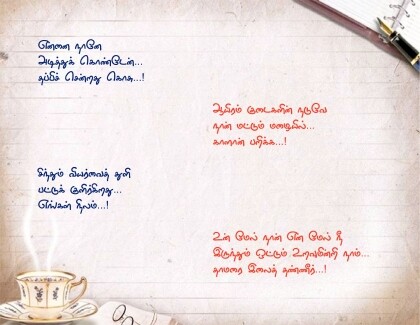 என்னை நானே
அடித்துக் கொண்டேன்...
தப்பிச் சென்றது கொசு...!
ஆயிரம் குடைகளின் நடுவே
நான் மட்டும் மழையில்...
காளான் பறிக்க...!
சிந்தும் வியர்வைத் துளி
பட்டுக் குளிர்கிறது...
எங்கள் நிலம்...!
உன் மேல் நான் என் மேல் நீ
இருந்தும் ஒட்டும் உறவுமின்றி நாம்...
தாமரை இலைத் தண்ணீர்...!